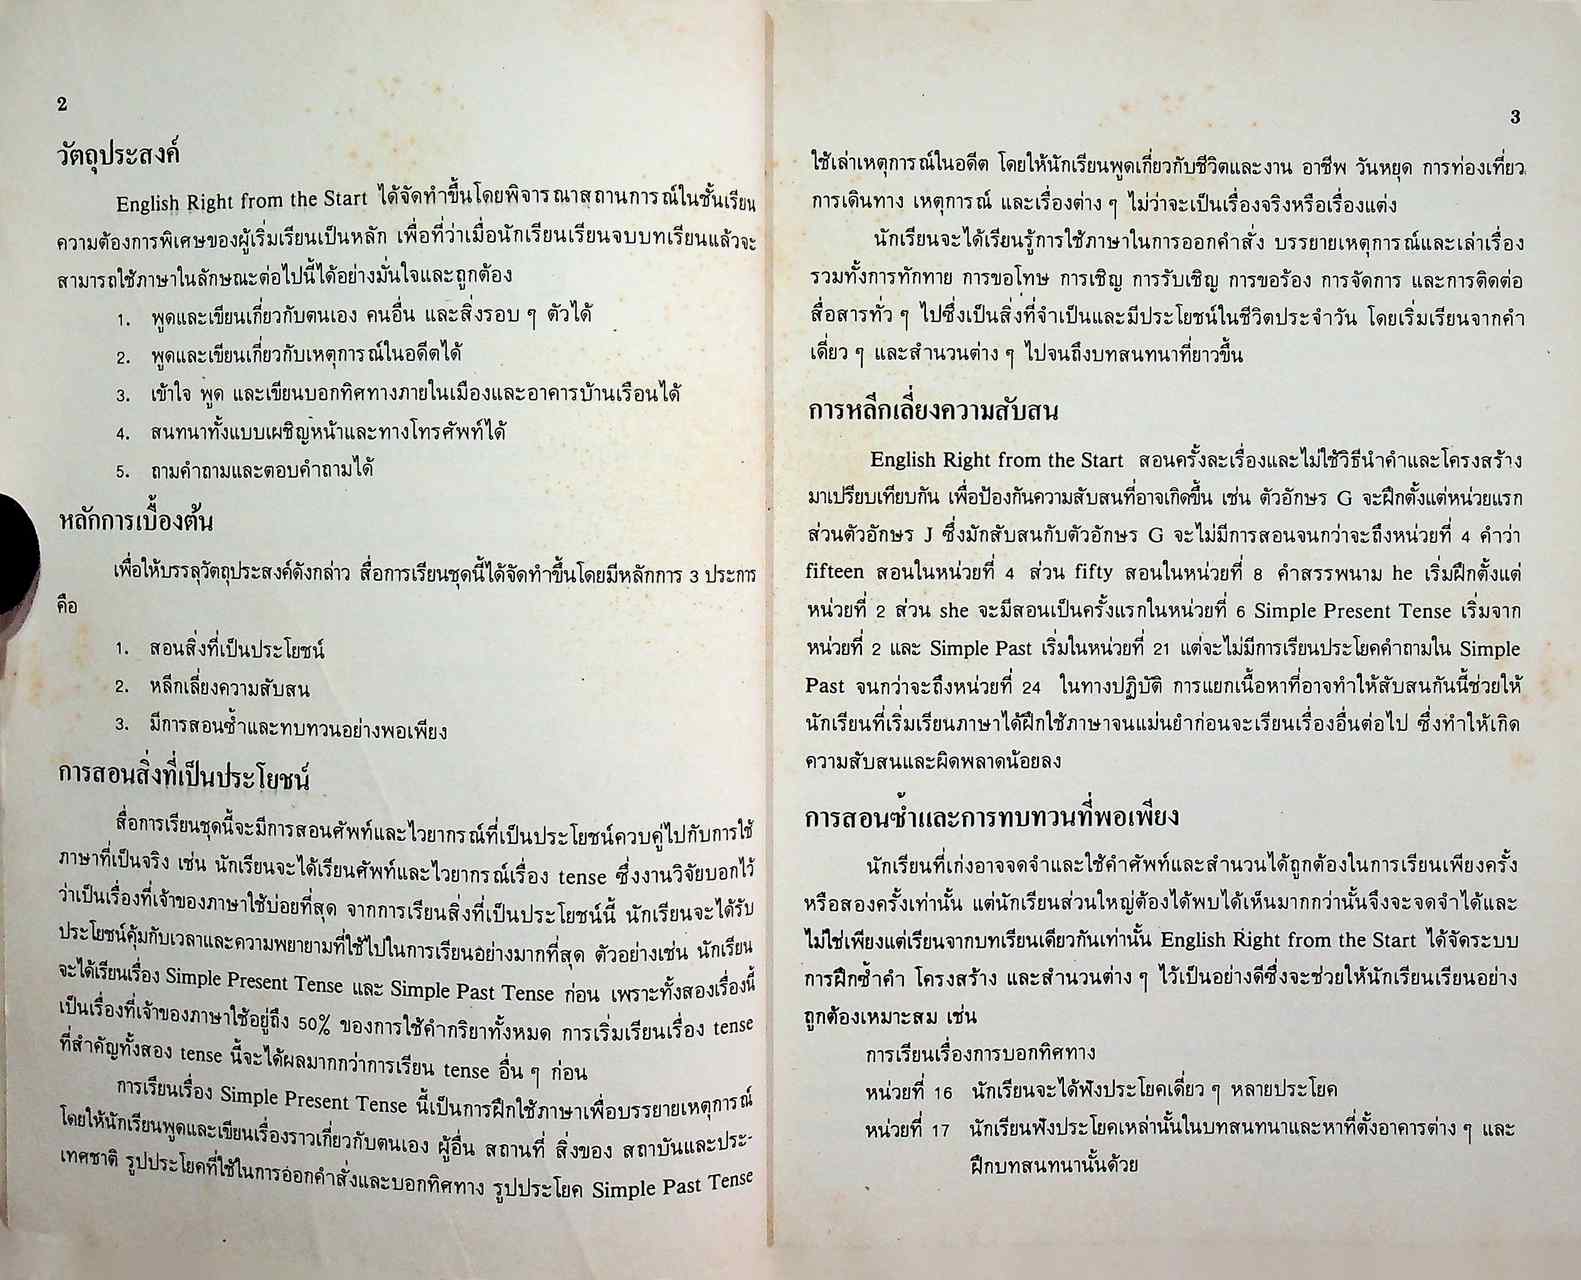 2
วัตถุประสงค์
English Right from the Start ได้จัดทำขึ้นโดยพิจารณาสถานการณ์ในชั้นเรียน
ความต้องการพิเศษของผู้เริ่มเรียนเป็นหลัก เพื่อที่ว่าเมื่อนักเรียนเรียนจบบทเรียนแล้วจะ
สามารถใช้ภาษาในลักษณะต่อไปนี้ได้อย่างมั่นใจและถูกต้อง
1. พูดและเขียนเกี่ยวกับตนเอง คนอื่น และสิ่งรอบ ๆ ตัวได้
2. พูดและเขียนเกี่ยวกับเหตุการณ์ในอดีตได้
3. เข้าใจ พูด และเขียนบอกทิศทางภายในเมืองและอาคารบ้านเรือนได้
4. สนทนาทั้งแบบเผชิญหน้าและทางโทรศัพท์ได้
5. ถามคำถามและตอบคำถามได้
หลักการเบื้องต้น
เพื่อให้บรรลุวัตถุประสงค์ดังกล่าว สื่อการเรียนชุดนี้ได้จัดทำขึ้นโดยมีหลักการ 3 ประการ
คือ
1. สอนสิ่งที่เป็นประโยชน์
2. หลีกเลี่ยงความสับสน
3. มีการสอนซ้ำและทบทวนอย่างพอเพียง
การสอนสิ่งที่เป็นประโยชน์
สื่อการเรียนชุดนี้จะมีการสอนศัพท์และไวยากรณ์ที่เป็นประโยชน์ควบคู่ไปกับการใช้
ภาษาที่เป็นจริง เช่น นักเรียนจะได้เรียนศัพท์และไวยากรณ์เรื่อง tense ซึ่งงานวิจัยบอกไว้
ว่าเป็นเรื่องที่เจ้าของภาษาใช้บ่อยที่สุด จากการเรียนสิ่งที่เป็นประโยชน์นี้ นักเรียนจะได้รับ
ประโยชน์คุ้มกับเวลาและความพยายามที่ใช้ไปในการเรียนอย่างมากที่สุด ตัวอย่างเช่น นักเรียน
จะได้เรียนเรื่อง Simple Present Tense และ Simple Past Tense ก่อน เพราะทั้งสองเรื่องนี้
เป็นเรื่องที่เจ้าของภาษาใช้อยู่ถึง 50% ของการใช้คำกริยาทั้งหมด การเริ่มเรียนเรื่อง tense
ที่สำคัญทั้งสอง tense นี้จะได้ผลมากกว่าการเรียน tense อื่น ๆ ก่อน
การเรียนเรื่อง Simple Present Tense นี้เป็นการฝึกใช้ภาษาเพื่อบรรยายเหตุการณ์
โดยให้นักเรียนพูดและเขียนเรื่องราวเกี่ยวกับตนเอง ผู้อื่น สถานที่ สิ่งของ สถาบันและประ-
เทศชาติ รูปประโยคที่ใช้ในการออกคำสั่งและบอกทิศทาง รูปประโยค Simple Past Tense
3
ใช้เล่าเหตุการณ์ในอดีต โดยให้นักเรียนพูดเกี่ยวกับชีวิตและงาน อาชีพ วันหยุด การท่องเที่ยว
การเดินทาง เหตุการณ์ และเรื่องต่าง ๆ ไม่ว่าจะเป็นเรื่องจริงหรือเรื่องแต่ง
นักเรียนจะได้เรียนรู้การใช้ภาษาในการออกคำสั่ง บรรยายเหตุการณ์และเล่าเรื่อง
รวมทั้งการทักทาย การขอโทษ การเชิญ การรับเชิญ การขอร้อง การจัดการ และการติดต่อ
สื่อสารทั่ว ๆ ไปซึ่งเป็นสิ่งที่จำเป็นและมีประโยชน์ในชีวิตประจำวัน โดยเริ่มเรียนจากคำ
เดี่ยว ๆ และสำนวนต่าง ๆ ไปจนถึงบทสนทนาที่ยาวขึ้น
การหลีกเลี่ยงความสับสน
English Right from the Start สอนครั้งละเรื่องและไม่ใช้วิธีนำคำและโครงสร้าง
มาเปรียบเทียบกัน เพื่อป้องกันความสับสนที่อาจเกิดขึ้น เช่น ตัวอักษร G จะฝึกตั้งแต่หน่วยแรก
ส่วนตัวอักษร J ซึ่งมักสับสนกับตัวอักษร G จะไม่มีการสอนจนกว่าจะถึงหน่วยที่ 4 คำว่า
fifteen สอนในหน่วยที่ 4 ส่วน fifty สอนในหน่วยที่ 8 คำสรรพนาม he เริ่มฝึกตั้งแต่
หน่วยที่ 2 ส่วน she จะมีสอนเป็นครั้งแรกในหน่วยที่ 6 Simple Present Tense เริ่มจาก
หน่วยที่ 2 และ Simple Past เริ่มในหน่วยที่ 21 แต่จะไม่มีการเรียนประโยคคำถามใน Simple
Past จนกว่าจะถึงหน่วยที่ 24 ในทางปฏิบัติ การแยกเนื้อหาที่อาจทำให้สับสนกันนี้ช่วยให้
นักเรียนที่เริ่มเรียนภาษาได้ฝึกใช้ภาษาจนแม่นยำก่อนจะเรียนเรื่องอื่นต่อไป ซึ่งทำให้เกิด
ความสับสนและผิดพลาดน้อยลง
การสอนซ้ำและการทบทวนที่พอเพียง
นักเรียนที่เก่งอาจจดจำและใช้คำศัพท์และสำนวนได้ถูกต้องในการเรียนเพียงครั้ง
หรือสองครั้งเท่านั้น แต่นักเรียนส่วนใหญ่ต้องได้พบได้เห็นมากกว่านั้นจึงจะจดจำได้และ
ไม่ใช่เพียงแต่เรียนจากบทเรียนเดียวกันเท่านั้น English Right from the Start ได้จัดระบบ
การฝึกซ้ำคำ โครงสร้าง และสำนวนต่าง ๆ ไว้เป็นอย่างดีซึ่งจะช่วยให้นักเรียนเรียนอย่าง
ถูกต้องเหมาะสม เช่น
การเรียนเรื่องการบอกทิศทาง
หน่วยที่ 16 นักเรียนจะได้ฟังประโยคเดี่ยว ๆ หลายประโยค
หน่วยที่ 17 นักเรียนฟังประโยคเหล่านั้นในบทสนทนาและหาที่ตั้งอาคารต่าง ๆ และ
ฝึกบทสนทนานั้นด้วย